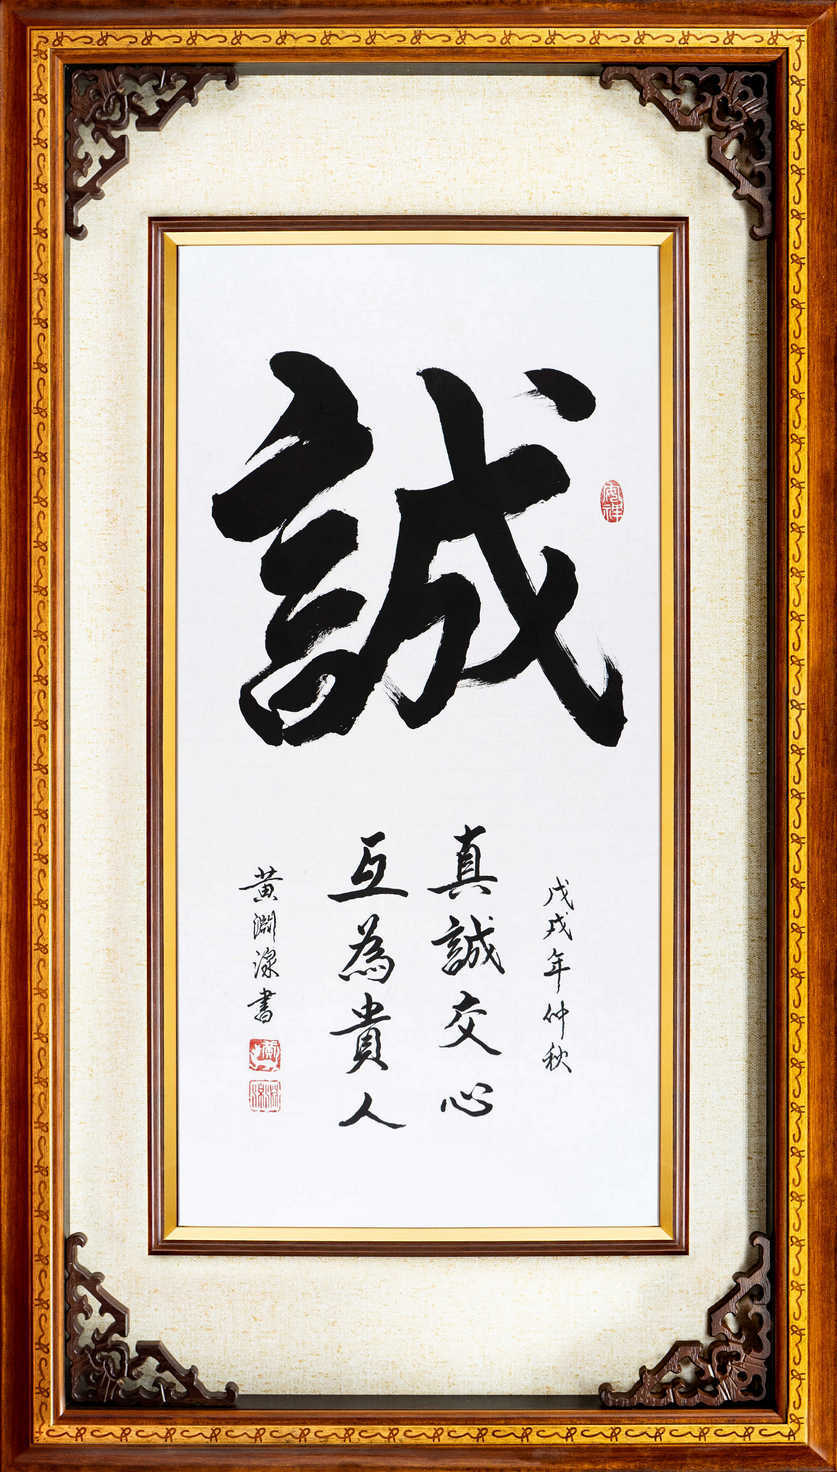 誠
戊戌年仲秋
真誠交心
互為貴人
黃淵淥書